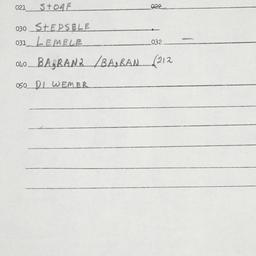 021 STOAF 022
030 STEDSELE
031 LEMELE 032 —
040 BAJRAN2 /BAJRAN (212
050 DI WEMER